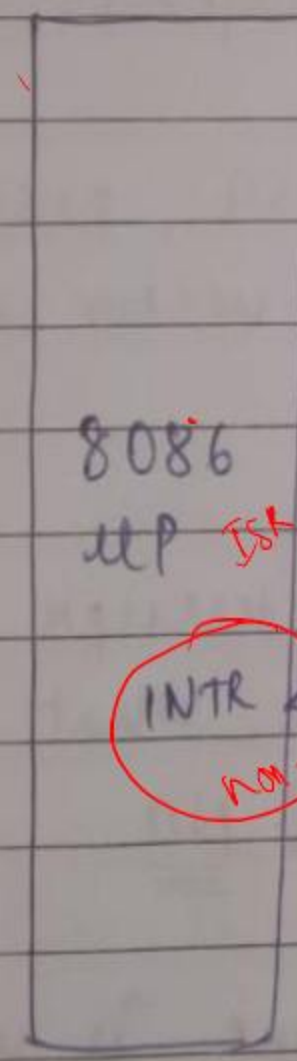 8086
μP ISR
INTR
non